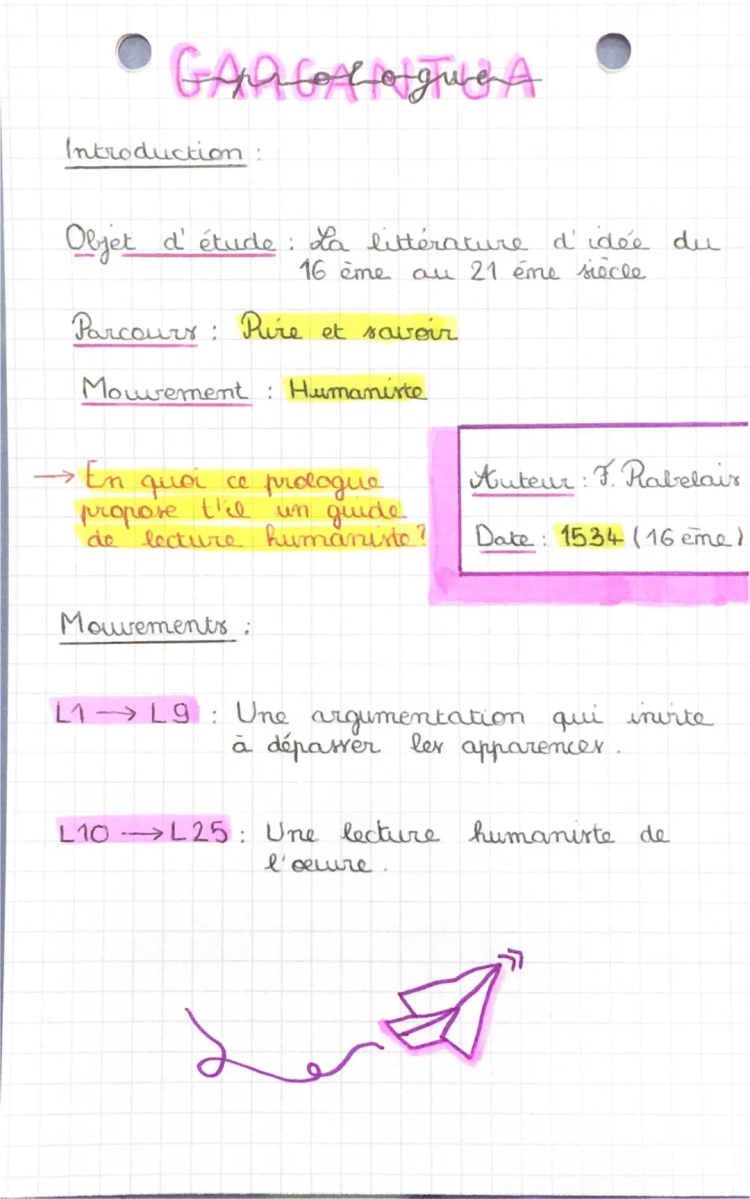 GARGANTUA
prologue
Introduction :
Objet d'étude : La littérature d'idée du
16 ème au 21 ème siècle
Parcours : Rire et savoir
Mouvement : Humaniste
→ En quoi ce prologue
propose t'il un guide
de lecture humaniste ?
Auteur : F. Rabelais
Date : 1534 (16 ème)
Mouvements :
L1 → L9 : Une argumentation qui invite
à dépasser les apparences.
L10 → L25 : Une lecture humaniste de
l'oeuvre.